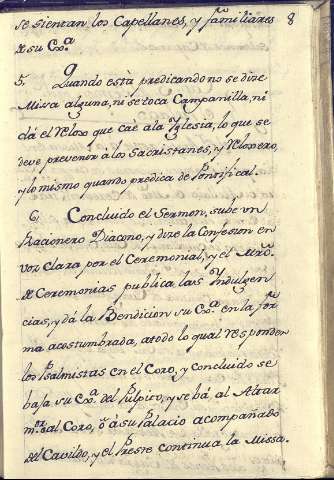 se sientan los Capellanes, y familiares 8
de su Exª.
5. Quando està predicando no se dize
Missa alguna, ni se toca Campanilla, ni
dá el Relox que caé ala Yglesia, lo que se
deve prevenir â los Sacristanes, y Relojero,
y lo mismo quando predica de Pontifical.
6. Concluido el Sermon, sube vn
Racionero Diacono, y dize la Confesion en
voz clara por el Ceremonial, y el Mrô.
de Ceremonias publica las Indulgen
cias, y dá la Bendicion su Exª. en la for
ma acostumbrada, atodo lo qual responden
los Psalmistas en el Coro, y concluido se
baja su Exª. del Pulpito, y se bá al Altar
mor. al Coro, ô á su Palacio acompañado
del Cavildo, y el Preste continua la Missa.